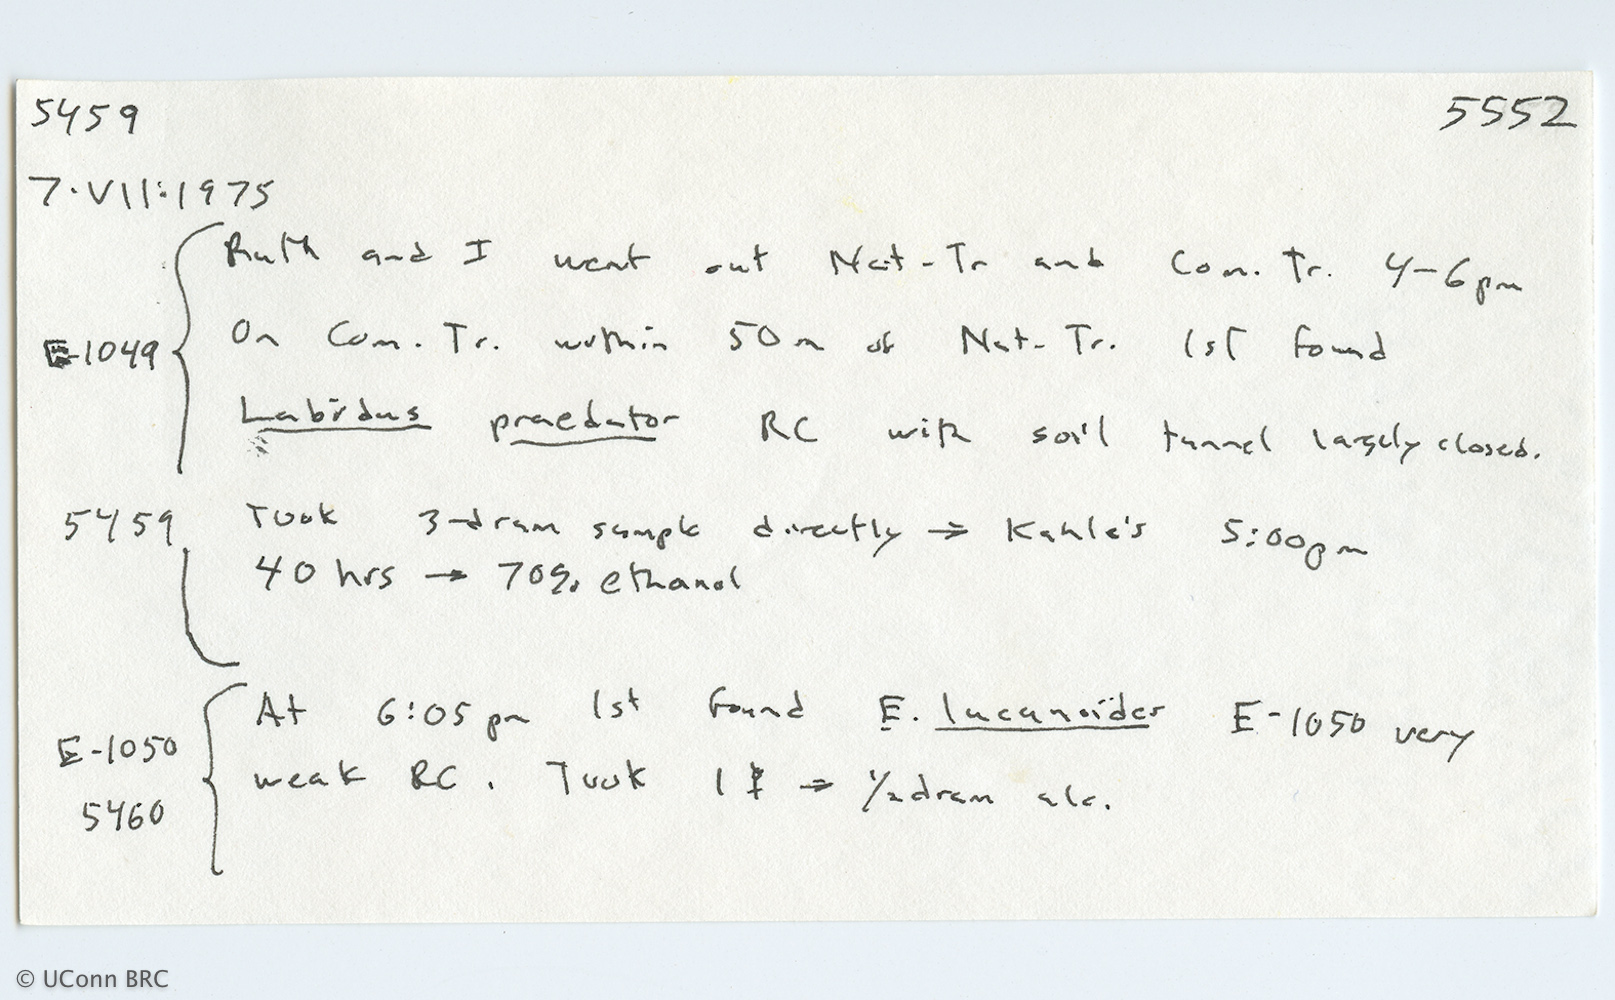 5459 5552
7·VII:1975
Ruth and I went out Nat-Tr and Com. Tr. 4-6pm
On Com. Tr. within 50m of Nat-Tr. 1st found
E-1049
Labidus praedator RC with soil tunnel largely closed.
5459 Took 3-dram sample directly → Kahle's 5:00pm
40 hrs → 70% ethanol
At 6:05 pm 1st found E. lucanoides E-1050 very
E-1050
weak RC. Took 1 → 1/2 dram alc.
5460
© UConn BRC